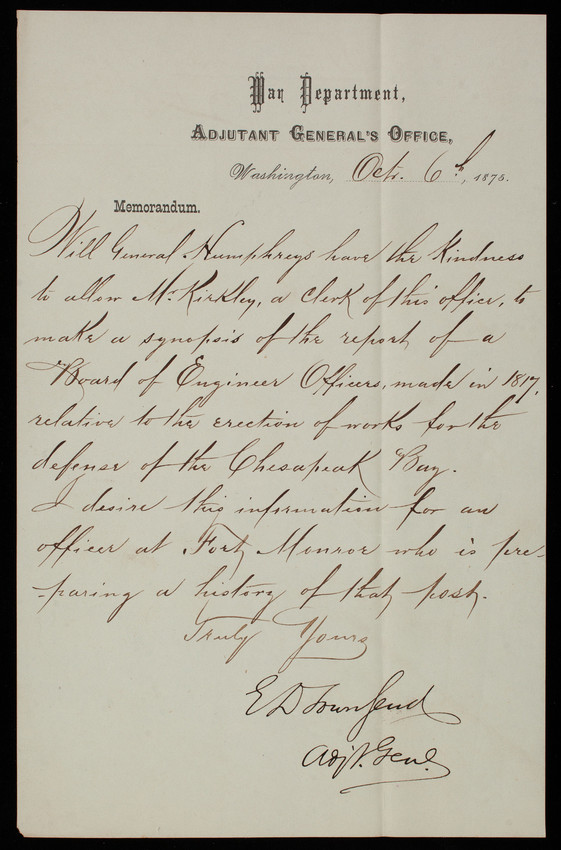 War Department,
Adjutant General's Office,
Washington, Octr. 6th, 1875.
Memorandum.
Will General Humphreys have the kindness
to allow Mr Kirkley, a clerk of this office, to
make a synopsis of the report of a
Board of Engineer Officers, made in 1817,
relative to the erection of works for the
defense of the Chesapeak Bay.
I desire this information for an
officer at Fort Monroe who is pre-
-paring a history of that post.
Truly Yours
E D Townsend
Adjt. Genl.